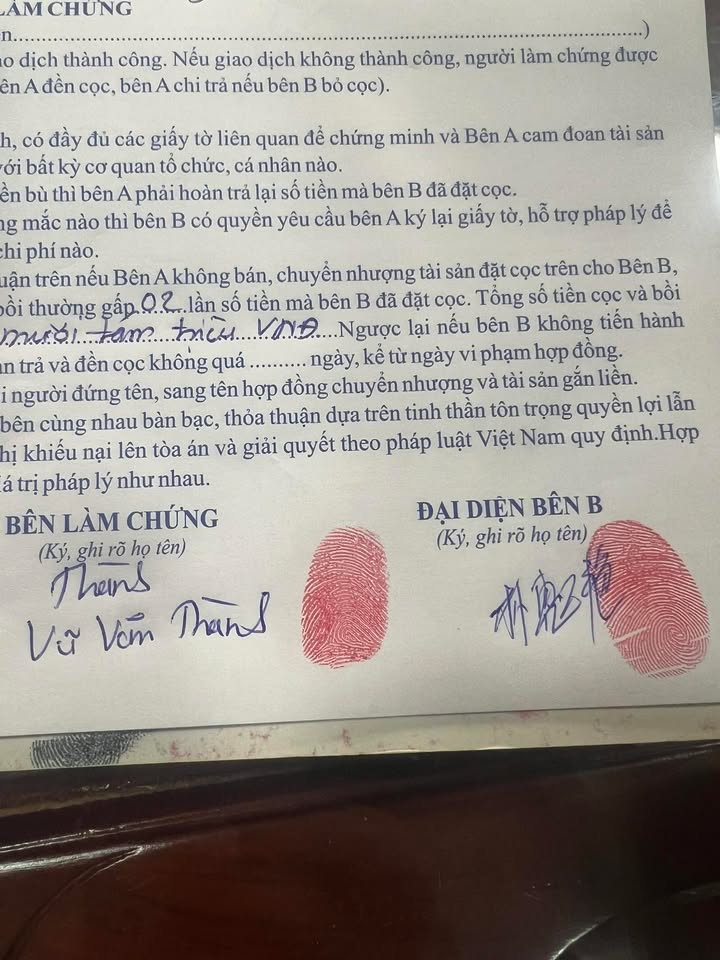 LÀM CHỨNG
n......................................................)
ao dịch thành công. Nếu giao dịch không thành công, người làm chứng được
ên A đền cọc, bên A chi trả nếu bên B bỏ cọc).
h, có đầy đủ các giấy tờ liên quan để chứng minh và Bên A cam đoan tài sản
với bất kỳ cơ quan tổ chức, cá nhân nào.
ền bù thì bên A phải hoàn trả lại số tiền mà bên B đã đặt cọc.
ng mắc nào thì bên B có quyền yêu cầu bên A ký lại giấy tờ, hỗ trợ pháp lý để
chi phí nào.
uận trên nếu Bên A không bán, chuyển nhượng tài sản đặt cọc trên cho Bên B,
bồi thường gấp 02 lần số tiền mà bên B đã đặt cọc. Tổng số tiền cọc và bồi
mười tám triệu VNĐ Ngược lại nếu bên B không tiến hành
n trả và đền cọc không quá .......... ngày, kể từ ngày vi phạm hợp đồng.
i người đứng tên, sang tên hợp đồng chuyển nhượng và tài sản gắn liền.
bên cùng nhau bàn bạc, thỏa thuận dựa trên tinh thần tôn trọng quyền lợi lẫn
hị khiếu nại lên tòa án và giải quyết theo pháp luật Việt Nam quy định.Hợp
iá trị pháp lý như nhau.
BÊN LÀM CHỨNG
(Ký, ghi rõ họ tên)
Thành
Vũ Văn Thành
ĐẠI DIỆN BÊN B
(Ký, ghi rõ họ tên)